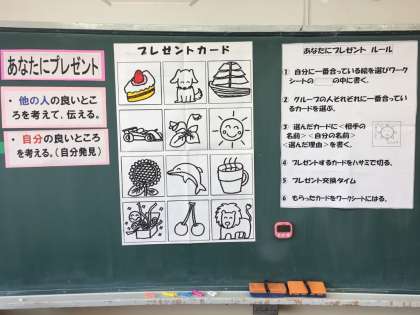 あなたにプレゼント
・他の人の良いとこ
ろを考えて、伝える。
・自分の良いところ
を考える。(自分発見)
プレゼントカード
あなたにプレゼント ルール
1 自分に一番合っている絵を選びワー
クシートの の中に書く。
2 グループの人それぞれに一番合ってい
るカードを選ぶ。
3 選んだカードに<相手の
名前><自分の名前>
<選んだ理由>を書く。
4 プレゼントするカードをハサミで切る。
5 プレゼント交換タイム
6 もらったカードをワークシートにはる。